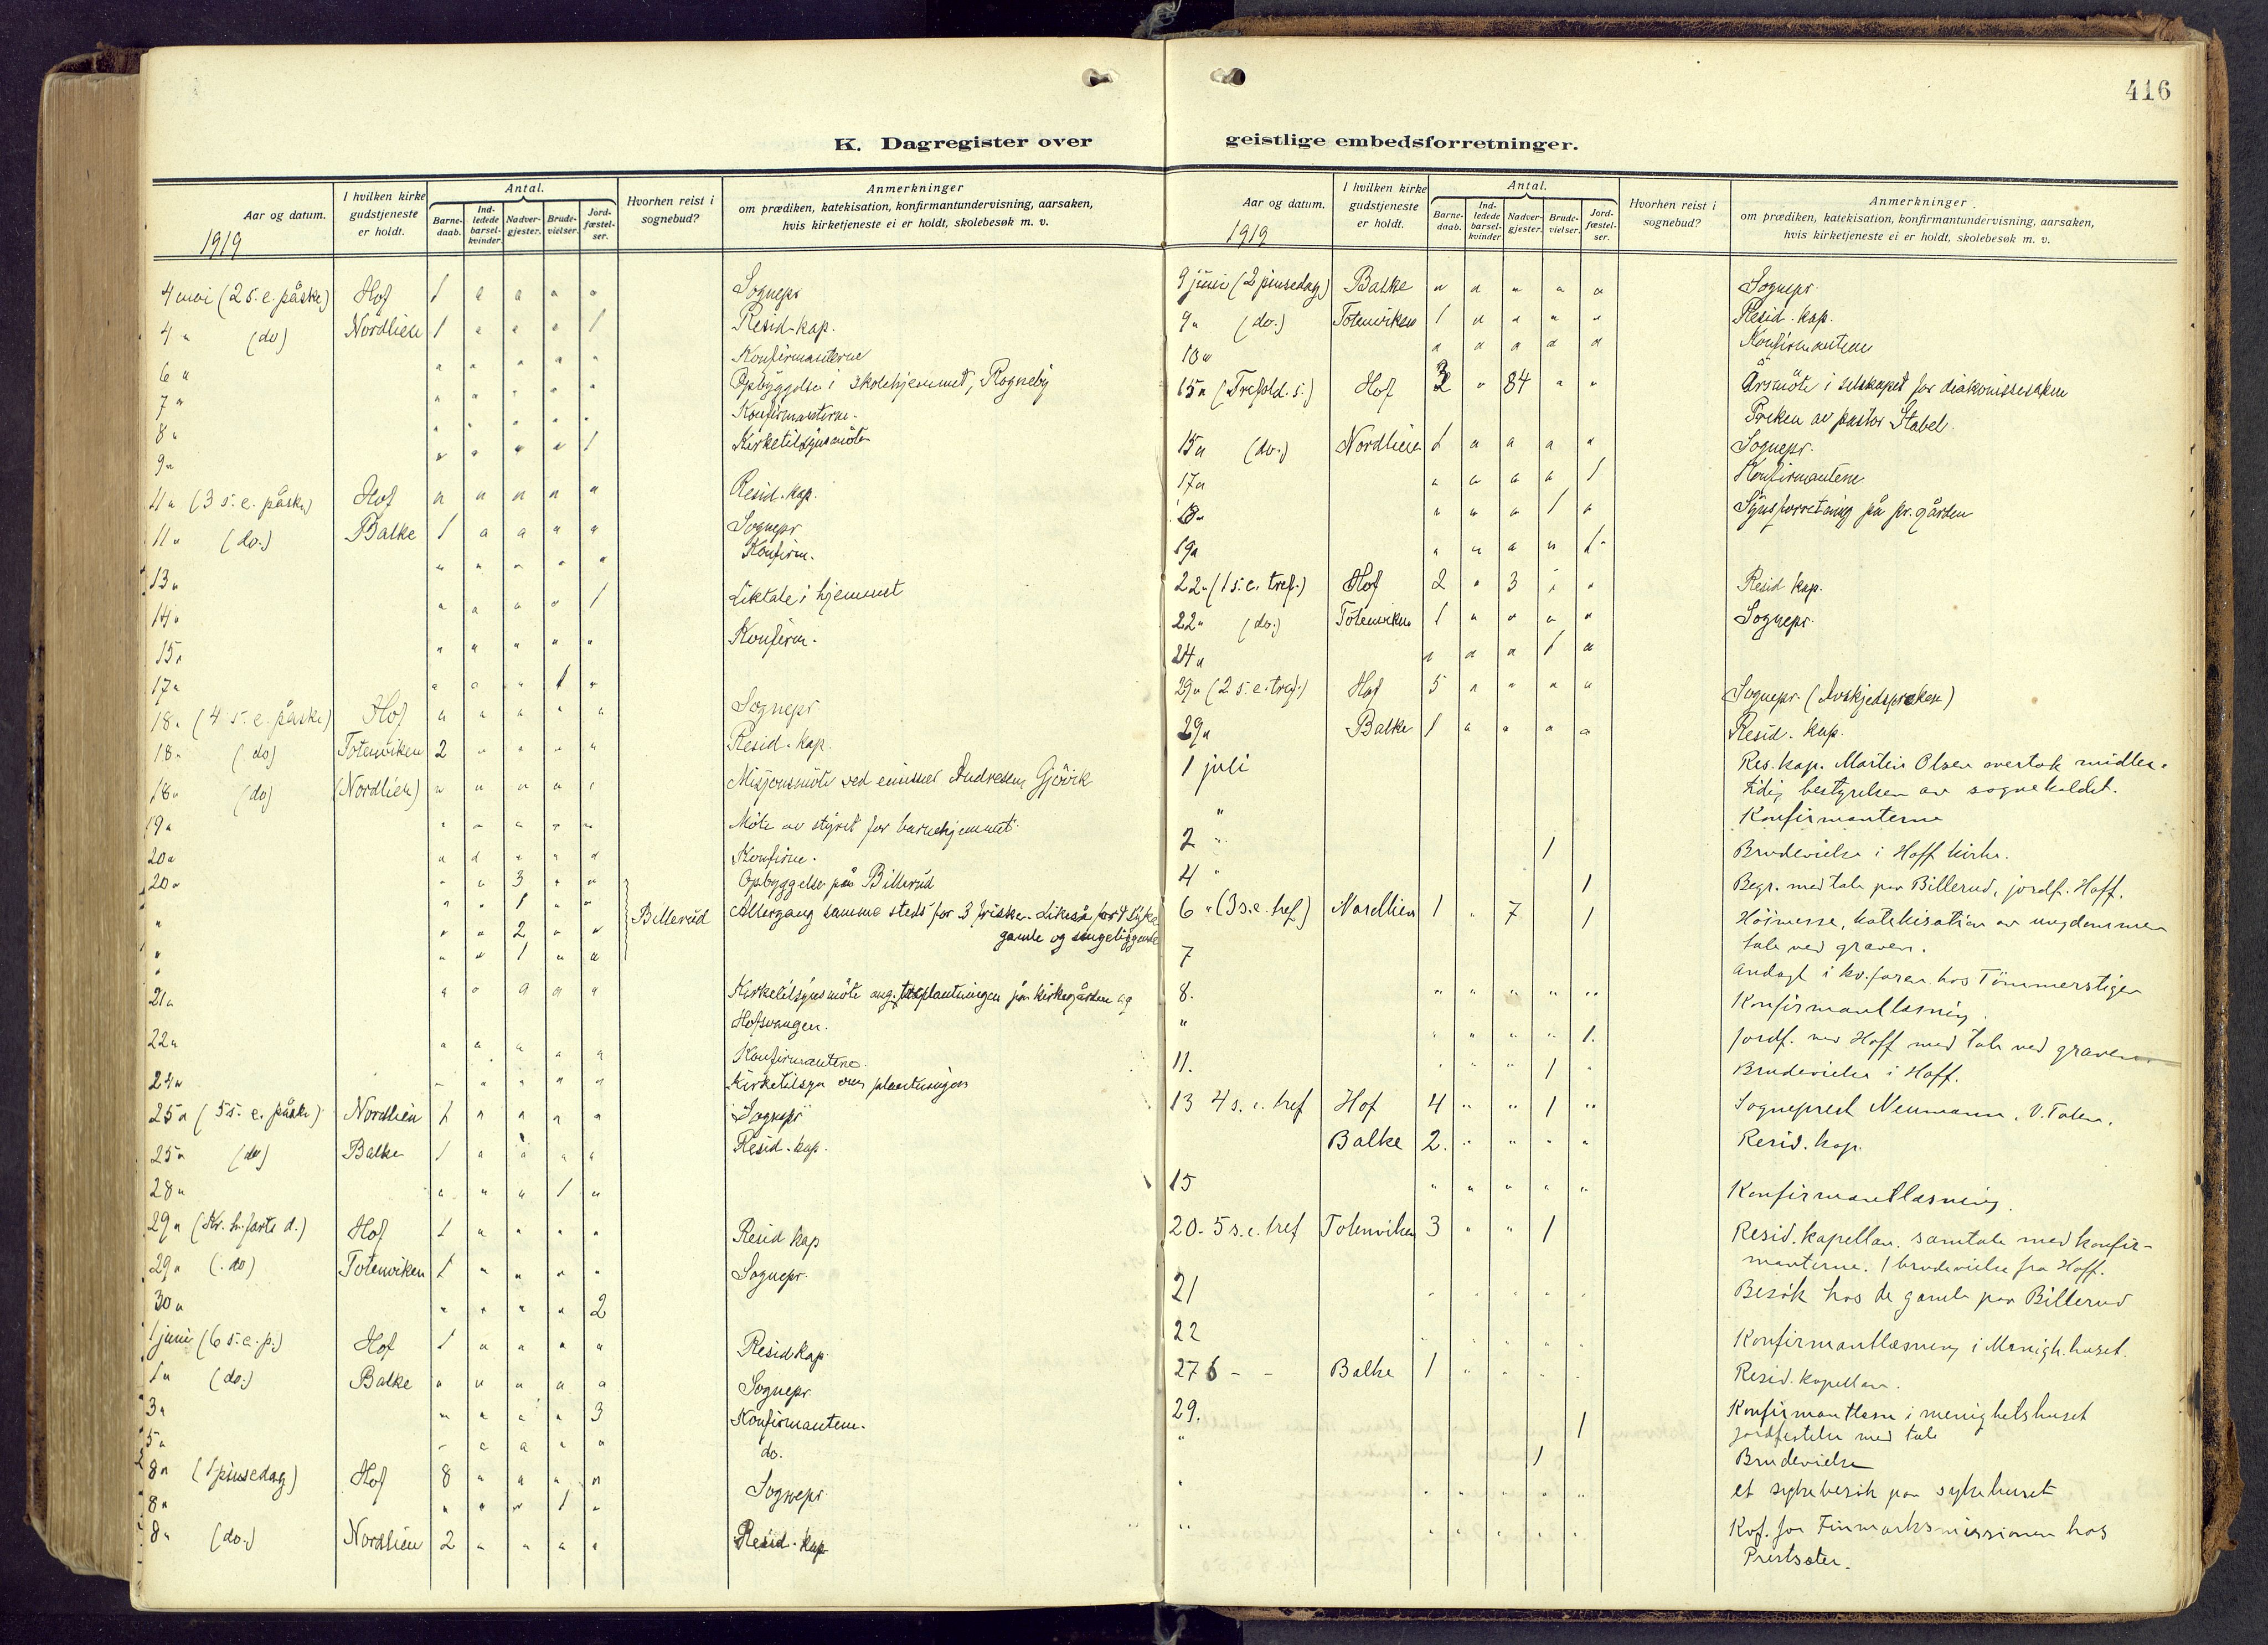 416
K. Dagregister over
Aar og datum. I hvilken kirke gudstjeneste er holdt. Antal. Barne-daab. Ind-ledede barsel-kvinder. Nadver-gjester. Brude-vielser. Jord-fæstel-ser. Hvorhen reist i sognebud? Anmerkninger om prædiken, katekisation, konfirmantundervisning, aarsaken, hvis kirketjeneste ei er holdt, skolebesøk m. v.
1919
4 mai (2 s. e. påske) Hof 1 " " " " Sognepr
4 " (do) Nordlien 1 " " " 1 Resid-kap.
6 " " " " " " Konfirmanterne
7 " " " " " " Opbyggelse i skolehjemmet, Rogneby
8 " " " " " " Konfirmanterne.
9 " " " " " 1 Kirketilsynsmöte
11 " (3 s. e. påske) Hof " " " " " Resid. kap.
11 " (do.) Balke 1 " " " " Sognepr
13 " " " " " " Konfirm.
14 " " " " " 1 Liktale i hjemmet
15 " " " " " " Konfirm.
17 " " " " 1 "
18 " (4 s. e. påske) Hof " " " " " Sognepr
18 " (do) Totenviken 2 " " " " Resid. kap.
18 " (do) (Nordlien) " " " " " Misjonsmöte ved emissær Andresen, Gjövik
19 " " " " " " Möte av styret for barnehjemmet.
20 " " " " " " Konfirm.
20 " " " 3 " " Opbyggelse på Billerud
" " " 1 " " Billerud Altergang samme steds for 3 friske. Likeså for 4 syke
" " " 2 " " gamle og sengeliggende
" " " 1 " "
21 " " " " " " Kirketilsynsmöte ang. plantningen på kirkegården og
Hofsvangen.
22 " " " " " " Konfirmantene.
24 " " " " " " Kirketilsyn om plantningen
25 " (5 s. e. påske) Nordlien 1 " " " " Sognepr
25 " (do) Balke 1 " " " " Resid. kap.
28 " " " " 1 "
29 " (Kr. h.farts d.) Hof 1 " " " " Resid kap
29 " (do) Totenviken 1 " " " " Sognepr.
30 " " " " " 2
1 juni (6 s. e. p.) Hof 1 " " " " Resid kap.
1 " (do.) Balke " " " " " Sognepr.
3 " " " " " 3 Konfirmantene.
5 " " " " " " do.
8 " (1 pinsedag) Hof 8 " " " " Sognepr.
8 " " " " 1 "
8 " (do.) Nordlien 2 " " " " Resid. kap
geistlige embedsforretninger.
Aar og datum. I hvilken kirke gudstjeneste er holdt. Antal. Barne-daab. Ind-ledede barsel-kvinder Nadver-gjester. Brude-vielser. Jord-fæstel-ser. Hvorhen reist i sognebud? Anmerkninger om prædiken, katekisation, konfirmantundervisning, aarsaken, hvis kirketjeneste ei er holdt, skolebesøk m. v.
1919
9 juni (2 pinsedag) Balke " " " " " Sognepr.
9 " (do.) Totenviken 1 " " " " Resid. kap.
10 " " " " " " Konfirmantene
15 " (Trefold. s.) Hof 3 " 84 " " Årsmöte i selskapet for diakonissesaken
Preken av pastor Stabel.
15 " (do.) Nordlien 1 " " " " Sognepr.
17 " " " " " 1 Konfirmantene
18 " " " " 1 " Synsforretning på pr. gården
19 " " " " " 1
22 " (1 s. e. tref.) Hof 2 " 3 1 " Resid kap.
22 " (do.) Totenviken 1 " " " " Sognepr.
24 " " " " 1 "
29 " (2 s. e. tref.) Hof 5 " " " " Sognepr. (Avskjedspreken)
29 " Balke 1 " " " " Resid. kap.
1 juli Res. kap. Martin Olsen overtok midler-
tidig bestyrelsen av sognekaldet.
" Konfirmanterne
2 " 1 Brudevielse i Hoff kirke.
4 " 1 Begr. med tale paa Billerud, jordf. Hoff.
6 " (3 s. e. tref) Nordlien 1 " 7 1 Höimesse, katekisation av ungdommen
tale ved graven.
7 Andagt i kv.foren hos Tömmerstigen
8. " " " " " Konfirmantlæsning
" " " " " 1. Jordf. ved Hoff med tale ved graven
11. " " " 1 " Brudevielse i Hoff.
13 4 s. e. tref Hof 4 " " 1 " Sogneprest Neumann, V. Toten.
Balke 2. " " " " Resid. kap.
15 " " " " " Konfirmantlæsning.
20. 5 s. e. tref Totenviken 3 " " 1 Resid. kapellan. samtale med konfir-
manterne. 1 brudevielse fra Hoff.
21 " " " " " Besök hos de gamle paa Billerud
22 " " " " Konfirmantlæsning i Menigh.huset.
27 6 - - Balke 1 " " " " Resid. kapellan.
29. Konfirmantlæsn i menighetshuset
" 1 Jordfestelse med tale
1 Brudevielse
" " " " " " et sykebesök paa sykehuset
" " " " " " Kvf. for Finmarksmissionen hos
Prestsæter.